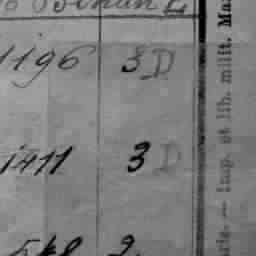 1196 3 D
1411 3 D
2
Paris. — Imp. et lib. milit. Ma